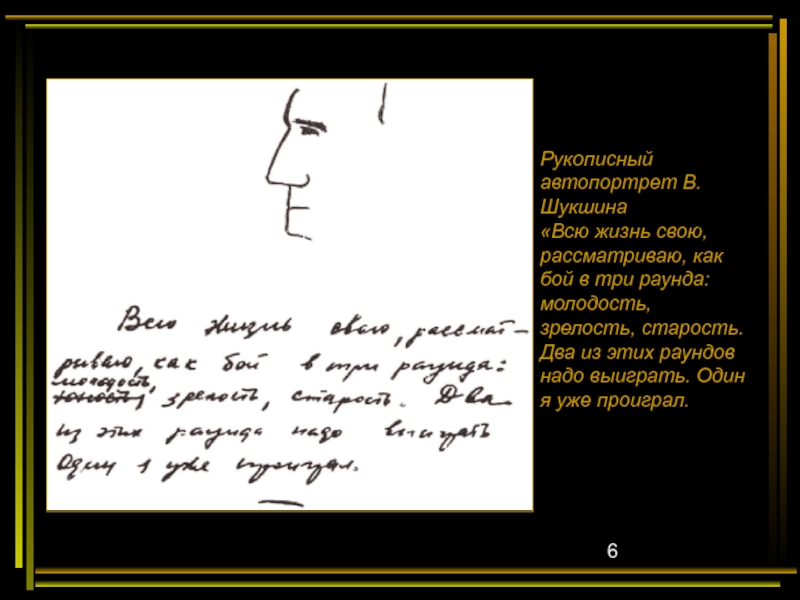 Всю жизнь свою, рассмат-
риваю, как бой в три раунда:
молодость,
юность, зрелость, старость. Два
из этих раунда надо выиграть
Один я уже проиграл.
Рукописный
автопортрет В.
Шукшина
«Всю жизнь свою,
рассматриваю, как
бой в три раунда:
молодость,
зрелость, старость.
Два из этих раундов
надо выиграть. Один
я уже проиграл.
6